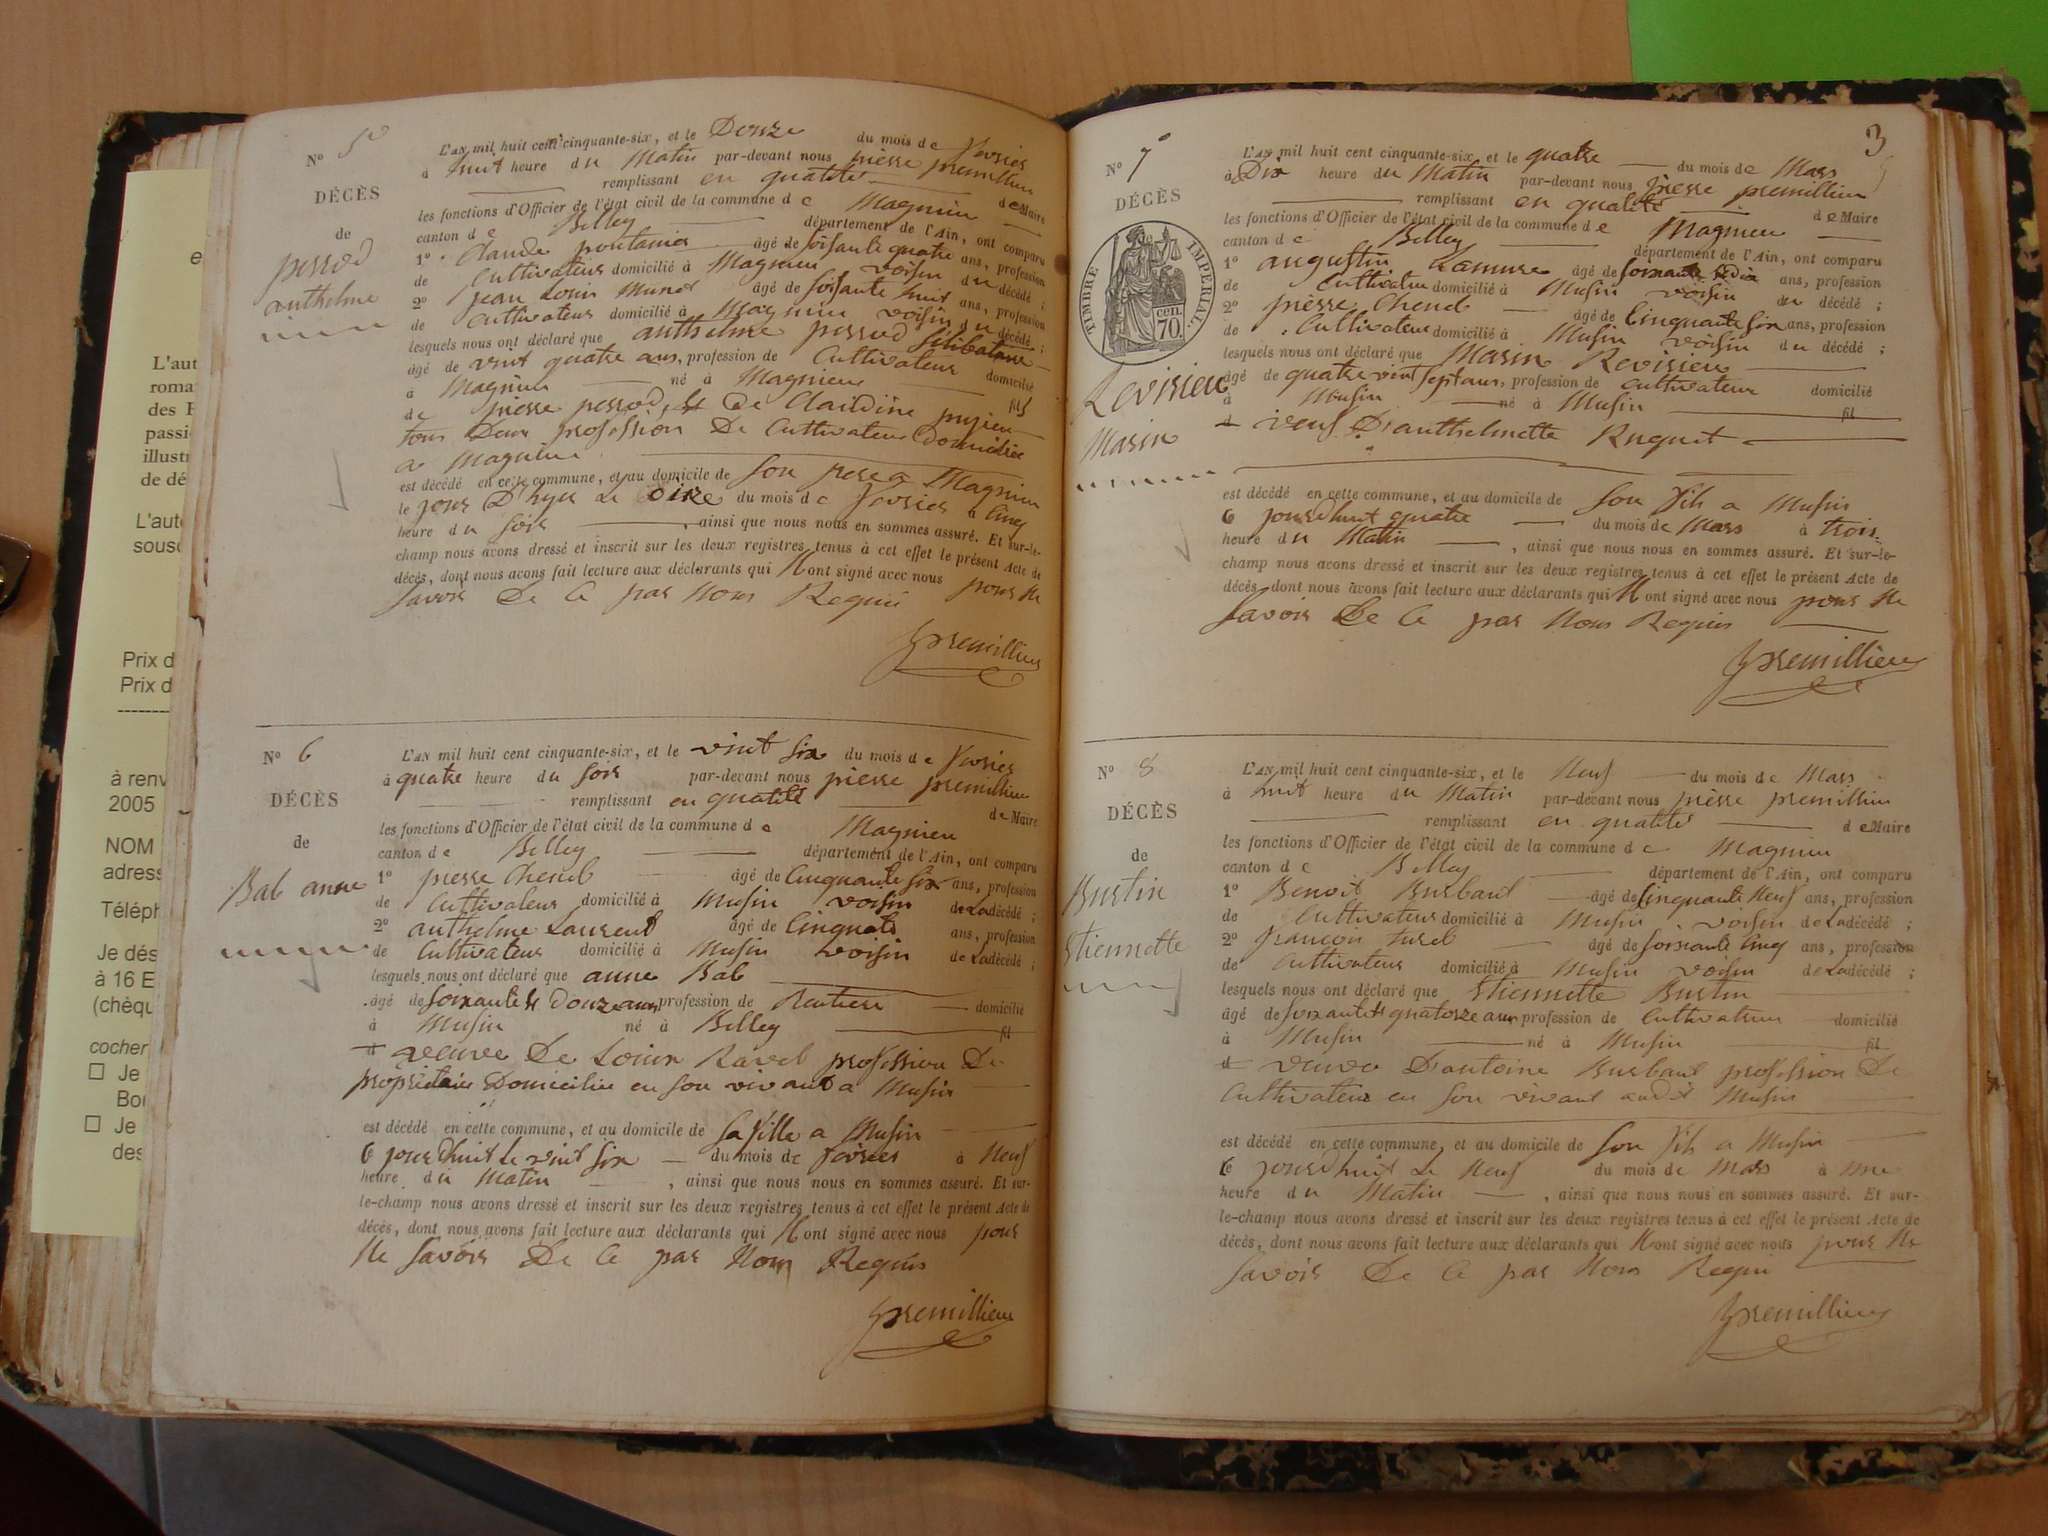 e
L'aut
roma
des F
passi
illustr
de dé
L'aute
sousc
Prix d
Prix d
à renv
2005
NOM
adress
Téléph
Je dés
à 16 E
(chèqu
cocher
Je
Bou
Je
des
N° 5
DÉCÈS
de
perrod
anthelme
L'AN mil huit cent cinquante-six, et le Douze du mois de fevrier
à huit heure du Matin par-devant nous pierre premillieu
remplissant en qualité de Maire
les fonctions d'Officier de l'état civil de la commune de Magnieu
canton de Belley département de l'Ain, ont comparu
1° Claude pontanier âgé de soisante quatre ans, profession
de Cultivateur domicilié à Magnieu voisin du décédé ;
2° jean Louis Munet âgé de soisante huit ans, profession
de Cultivateur domicilié à Magnieu voisin du décédé ;
lesquels nous ont déclaré que anthelme perrod Selibataire
âgé de vint quatre ans, profession de Cultivateur domicilié
à Magnieu né à Magnieu fils
de pierre perrod et De Claudine pujieu
tous Deux profession De Cultivateur Domicilié
a Magnieu
est décédé en cette commune, et au domicile de son pere a Magnieu
le jour D'hyer Le onze du mois de fevrier à Cinq
heure du soir , ainsi que nous nous en sommes assuré. Et sur-le-
champ nous avons dressé et inscrit sur les deux registres tenus à cet effet le présent Acte de
décès, dont nous avons fait lecture aux déclarants qui N ont signé avec nous pour Ne
savoir De Ce par Nous Requi
premillieu
N° 6
DÉCÈS
de
Bal anne
L'AN mil huit cent cinquante-six, et le vint six du mois de fevrier
à quatre heure du soir par-devant nous pierre premillieu
remplissant en qualité de Maire
les fonctions d'Officier de l'état civil de la commune de Magnieu
canton de Belley département de l'Ain, ont comparu
1° pierre Chenel âgé de Cinquante six ans, profession
de Cultivateur domicilié à Musin voisin de La décédé ;
2° anthelme Laurent âgé de Cinquate ans, profession
de Cultivateur domicilié à Musin voisin de La décédé ;
lesquels nous ont déclaré que anne Bal
âgé de soixante et Douze ans, profession de Rentiere domicilié
à Musin né à Belley fil
d veuve De Louis Ravel profession De
propriétaire Domicilié en son vivant a Musin
est décédé en cette commune, et au domicile de sa fille a Musin
C jourdhuit Le vint six du mois de fevrier à Neuf
heure du Matin , ainsi que nous nous en sommes assuré. Et sur-
le-champ nous avons dressé et inscrit sur les deux registres tenus à cet effet le présent Acte de
décès, dont nous avons fait lecture aux déclarants qui N ont signé avec nous pour
Ne savoir De Ce par Nous Requis
premillieu
3
N° 7
DÉCÈS
TIMBRE IMPERIAL.
cen.
70.
Revirieu
Marin
L'AN mil huit cent cinquante-six, et le quatre du mois de Mars
à Dix heure du Matin par-devant nous pierre premillieu
remplissant en qualité de Maire
les fonctions d'Officier de l'état civil de la commune de Magnieu
canton de Belley département de l'Ain, ont comparu
1° augustin Lamure âgé de soixante et dix ans, profession
de Cultivateur domicilié à Musin voisin du décédé ;
2° pierre Chenel âgé de Cinquante six ans, profession
de Cultivateur domicilié à Musin voisin du décédé ;
lesquels nous ont déclaré que Marin Revirieu
âgé de quatre vint sept ans, profession de Cultivateur domicilié
à Musin né à Musin fil
d veuf D'anthelmette Ruquet
est décédé en cette commune, et au domicile de son fils a Musin
C jourdhuit quatre du mois de Mars à trois
heure du Matin , ainsi que nous nous en sommes assuré. Et sur-le-
champ nous avons dressé et inscrit sur les deux registres tenus à cet effet le présent Acte de
décès dont nous avons fait lecture aux déclarants qui N ont signé avec nous pour Ne
savoir De Ce par Nous Requis
premillieu
N° 8
DÉCÈS
de
Burtin
Etiennette
L'AN mil huit cent cinquante-six, et le Neuf du mois de Mars
à huit heure du Matin par-devant nous pierre premillieu
remplissant en qualité de Maire
les fonctions d'Officier de l'état civil de la commune de Magnieu
canton de Belley département de l'Ain, ont comparu
1° Benoit Burbant âgé de Cinquante Neuf ans, profession
de Cultivateur domicilié à Musin voisin de La décédé ;
2° françois turel âgé de soisiante Cinq ans, profession
de Cultivateur domicilié à Musin voisin de La décédé ;
lesquels nous ont déclaré que Etiennette Burtin
âgé de soixante et quatorze ans profession de Cultivateur domicilié
à Musin né à Musin fil
d veuve D'antoine Burbant profession De
Cultivateur en son vivant audit Musin
est décédé en cette commune, et au domicile de son fils a Musin
C jourdhuit Le Neuf du mois de Mars à une
heure du Matin , ainsi que nous nous en sommes assuré. Et sur-
le-champ nous avons dressé et inscrit sur les deux registres tenus à cet effet le présent Acte de
décès, dont nous avons fait lecture aux déclarants qui N ont signé avec nous pour Ne
savoir De Ce par Nous Requi
premillieu